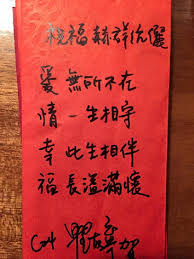 祝福赫祥伉儷
愛 無所不在
情 一生相守
幸 此生相伴
福 長溢滿懷
賀